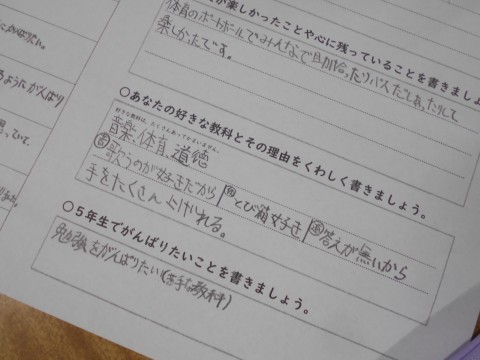 が楽しかったことや心に残っていることを書きましょ
体育のポートボールでみんなで助け合ったりパスだしたりして
楽しかったです。
○あなたの好きな教科とその理由をくわしく書きましょう。
好きな教科は、たくさんあってかまいません。
音楽、体育、道徳
歌うのが好きだから
とび箱好き
答えが無いから
手をたくさん上げれる。
○5年生でがんばりたいことを書きましょう。
勉強をがんばりたい(苦手な教科)
ようにがんばり